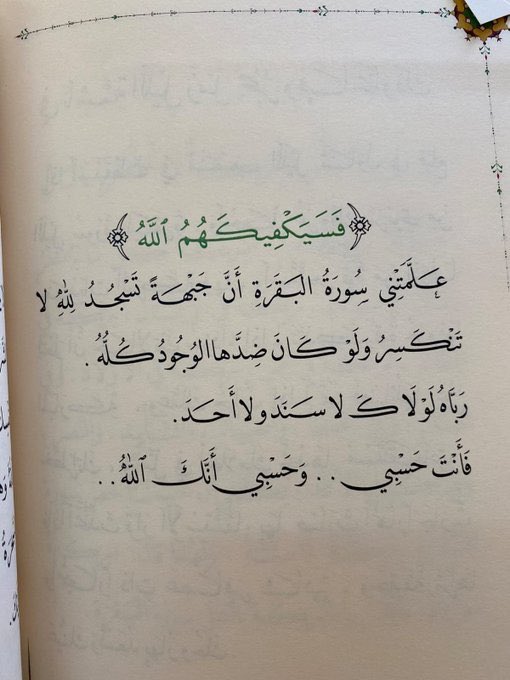 ﴿فَسَيَكْفِيكَهُمُ ٱللَّهُ﴾
عَلَّمَتْنِي سُورَةُ البَقَرَةِ أَنَّ جَبْهَةً تَسْجُدُ لِلّٰهِ لا
تَنْكَسِرُ وَلَوْ كَانَ ضِدَّها الوُجُودُ كُلُّهُ.
رَبَّاهُ لَوْلَاكَ لا سَنَدَ ولا أَحَدَ.
فَأَنْتَ حَسْبِي .. وَحَسْبِي أَنَّكَ ٱللّٰهُ..